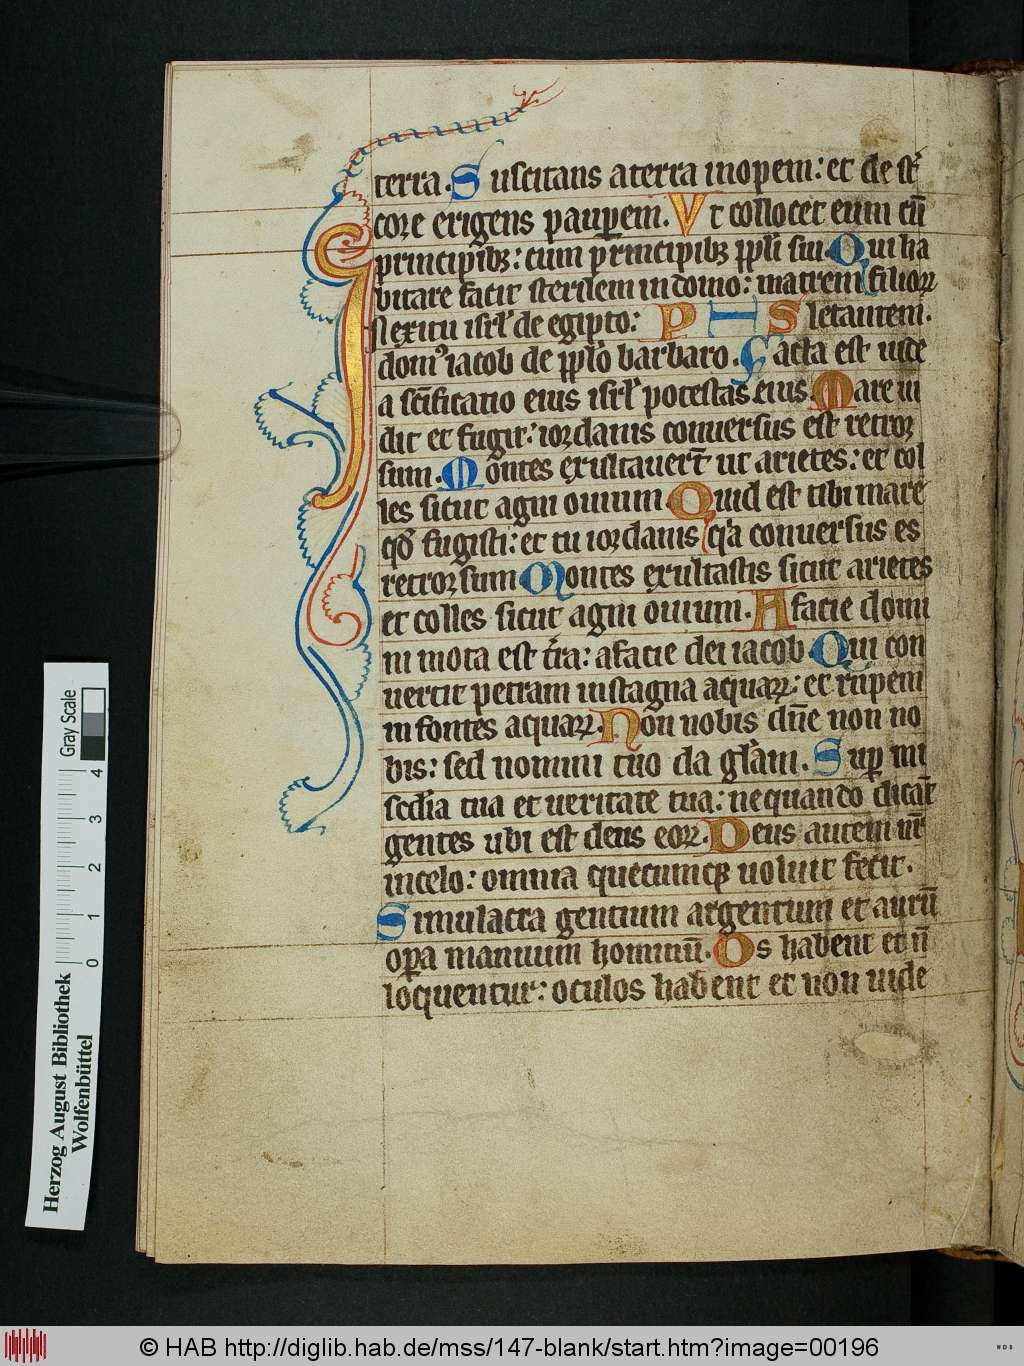 terra. Suscitans a terra inopem: et de st͛
core erigens pauꝑem. Vt collocet eum cū
principibꝫ: cum principibꝫ ppl̓i sui. Qui ha
bitare facit sterilem in domo: matrem filioꝝ
In exitu isrl̓ de egipto: P H S letantem.
domꝰ iacob de ppl̓o barbaro. Facta est iude
a sc̄ificatio eius isrl̓ potestas eius. Mare ui
dit et fugit: iordanis conuersus est retror
sum. Montes exultauer̄t ut arietes: et col
les sicut agni ouium. Quid est tibi mare
qd̄ fugisti: et tu iordanis q̓a conuersus es
retrorsum. Montes exultastis sicut arietes
et colles sicut agni ouium. A facie domi
ni mota est t̓ra: a facie dei iacob. Qui con
uertit petram in stagna aquaꝝ: et rupem
in fontes aquaꝝ. Non nobis dn̄e non no
bis: sed nomini tuo da gl̓am. Suꝑ mi
scd̓ia tua et ueritate tua: nequando dicāt
gentes ubi est deus eoꝝ. Deus autem nr̄
in celo: omnia quecumqꝫ uoluit fecit.
Simulacra gentium argentum et aurū
oꝑa manuum hominū. Os habent et n̄
loquentur: oculos habent et non uide
Herzog August Bibliothek
Wolfenbüttel
0 1 2 3 4
Gray Scale
© HAB http://diglib.hab.de/mss/147-blank/start.htm?image=00196